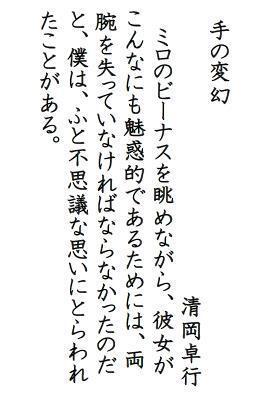 手の変幻
清岡卓行
ミロのビーナスを眺めながら、彼女が
こんなにも魅惑的であるためには、両
腕を失っていなければならなかったのだ
と、僕は、ふと不思議な思いにとらわれ
たことがある。